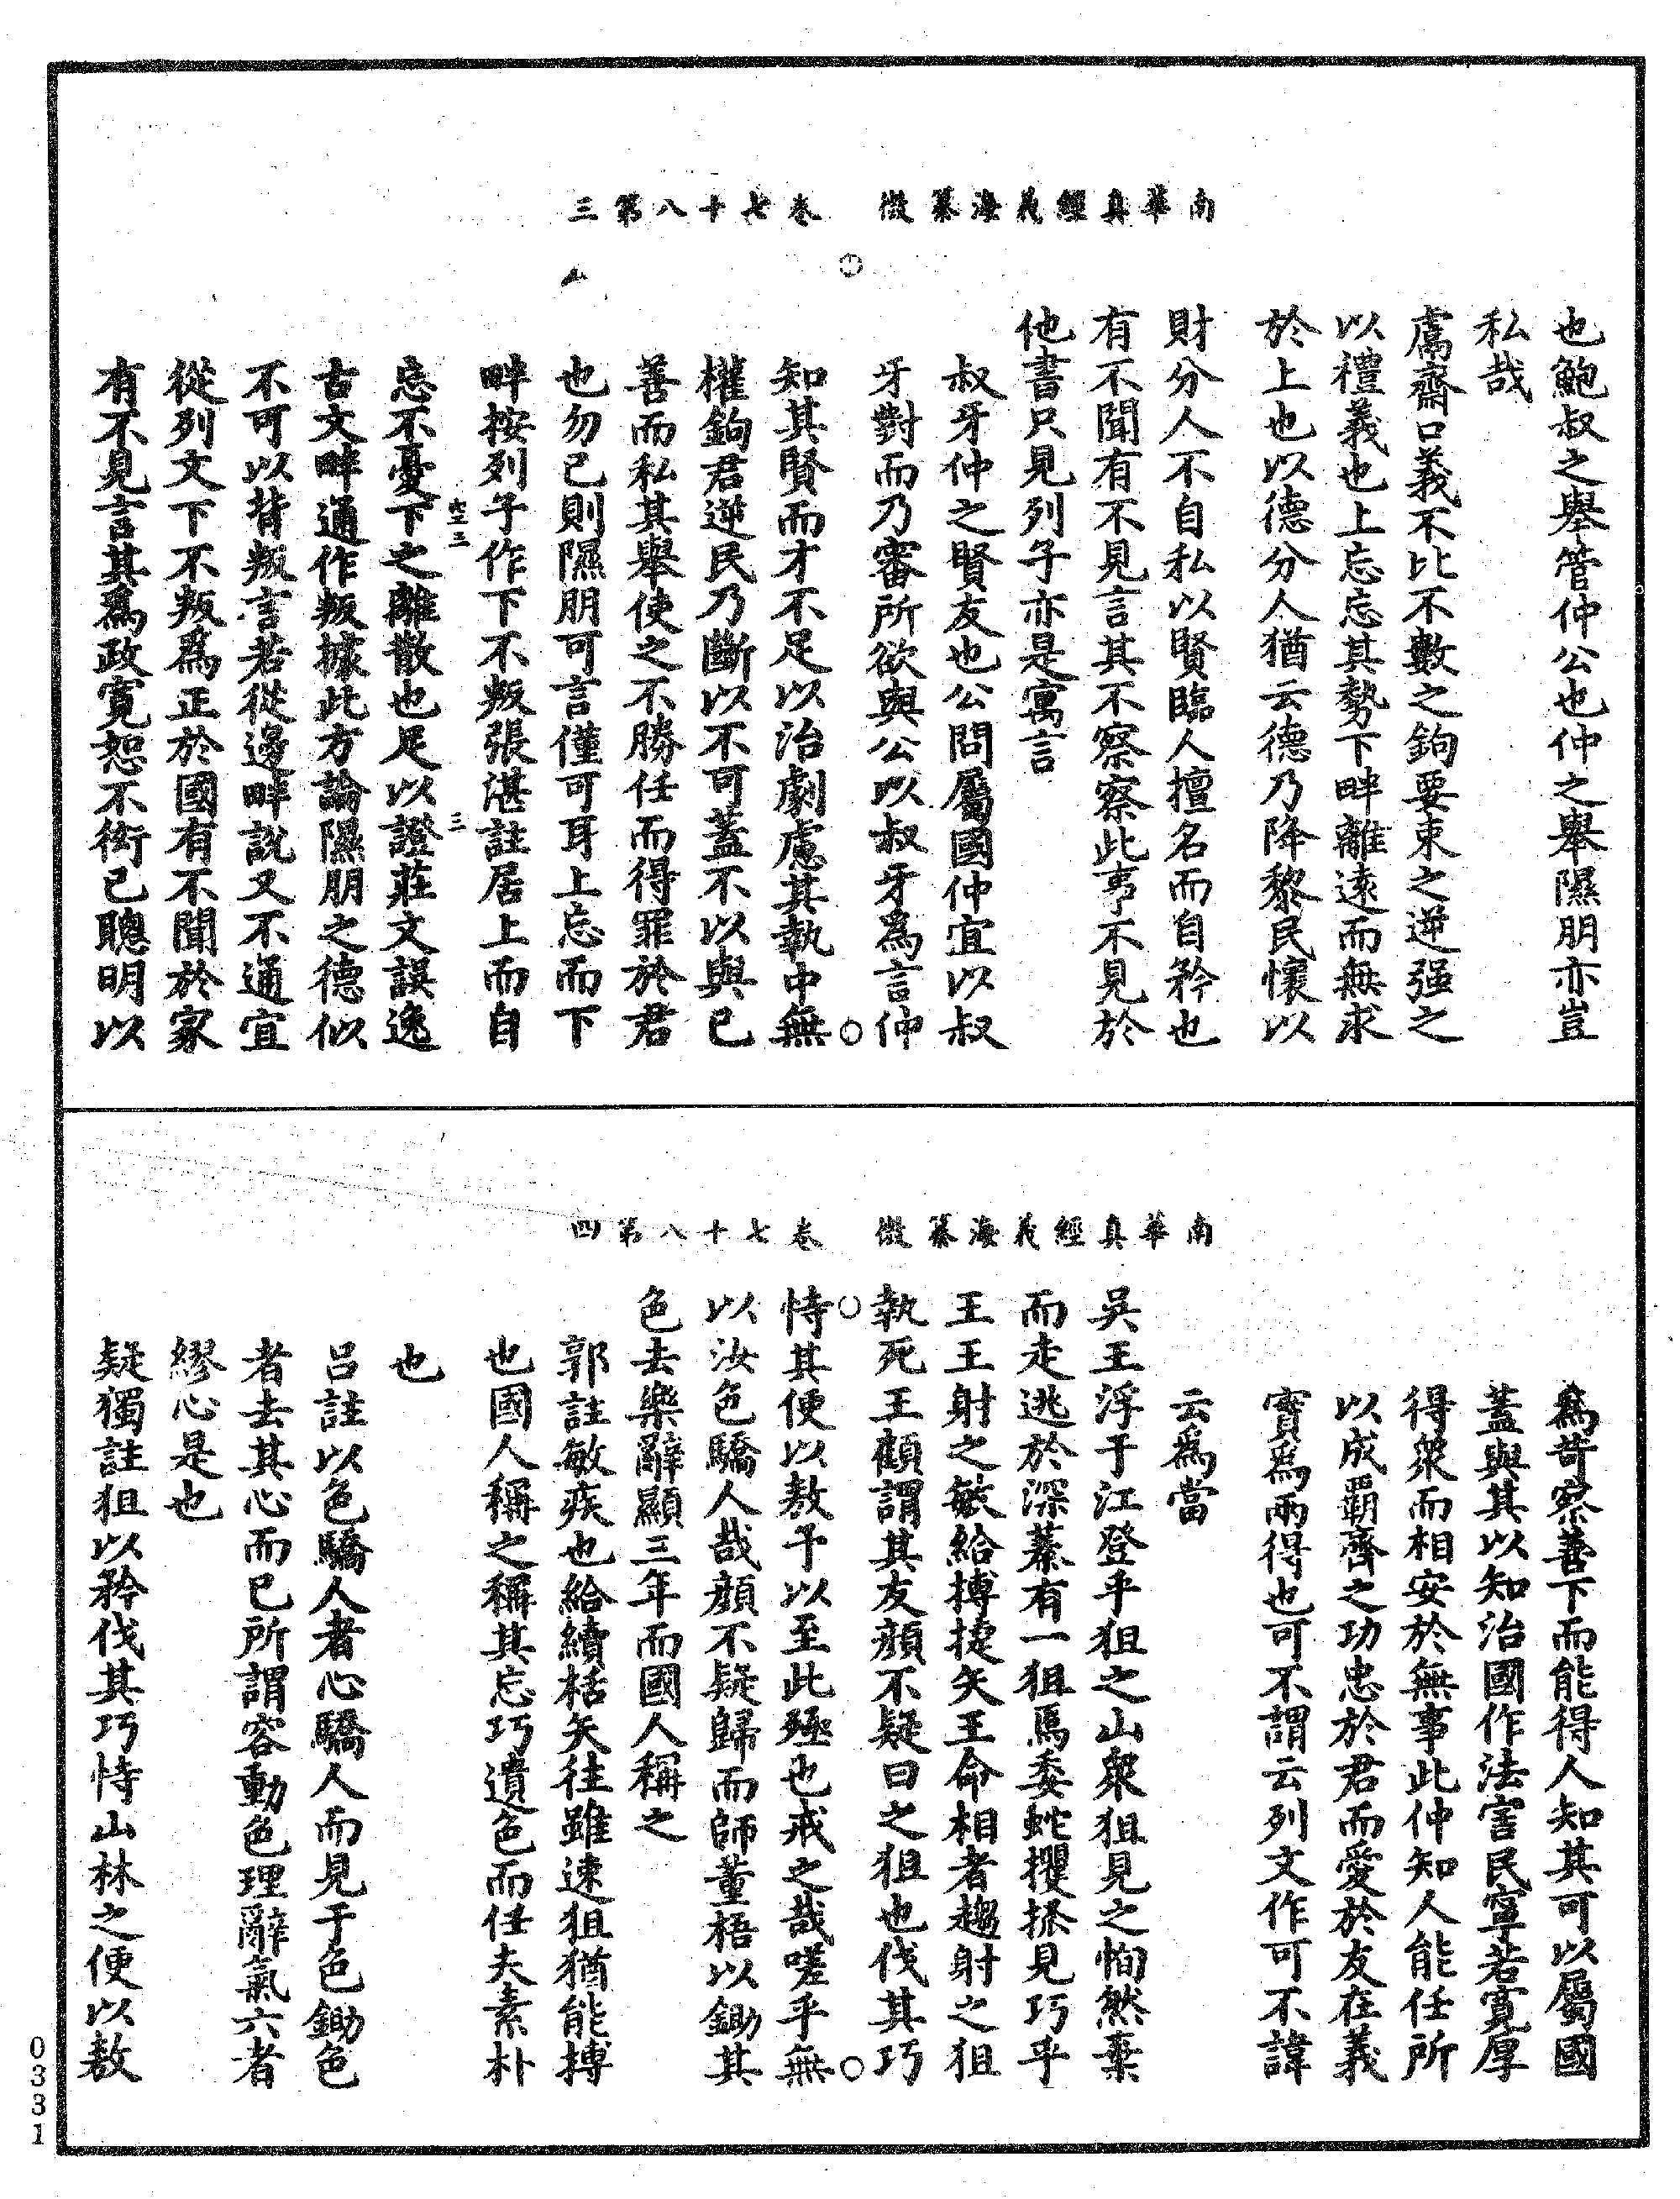 南華真經義海纂微　卷七十八第三
也鮑叔之舉管仲公也仲之舉隰朋亦豈
私哉
鬳齋口義不比不數之鉤要束之逆强之
以禮義也上忘忘其勢下畔離遠而無求
於上也以德分人猶云德乃降黎民懷以
財分人不自私以賢臨人擅名而自矜也
有不聞有不見言其不察察此事不見於
他書只見列子亦是寓言
叔牙仲之賢友也公問屬國仲宜以叔
牙對而乃審所欲與公以叔牙為言仲
知其賢而才不足以治劇慮其執中無
權鉤君逆民乃斷以不可蓋不以與已
善而私其舉使之不勝任而得罪於君
也勿已則隰朋可言僅可耳上忘而下
畔按列子作下不叛張湛註居上而自
忘不憂下之離散也足以證莊文誤逸
古文畔通作叛據此方論隰朋之德似
不可以背叛言若從邊畔說又不通宜
從列文下不叛為正於國有不聞於家
有不見言其為政寬恕不衒已聰明以
南華真經義海纂微　卷七十八第四
為苛察善下而能得人知其可以屬國
蓋與其以知治國作法害民寧若寬厚
得衆而相安於無事此仲知人能任所
以成霸齊之功忠於君而愛於友在義
實為兩得也可不謂云列文作可不諱
云為當
吳王浮于江登乎狙之山衆狙見之恂然棄
而走逃於深蓁有一狙焉委蛇攫搔見巧乎
王王射之敏給搏捷矢王命相者趨射之狙
執死王顧謂其友顔不疑曰之狙也伐其巧
恃其便以敖予以至此殛也戒之哉嗟乎無
以汝色驕人哉顔不疑歸而師董梧以鋤其
色去樂辭顯三年而國人稱之
郭註敏疾也給續括矢往雖速狙猶能搏
也國人稱之稱其忘巧遺色而任夫素朴
也
呂註以色驕人者心驕人而見于色鋤色
者去其心而已所謂容動色理辭氣六者
繆心是也
疑獨註狙以矜伐其巧恃山林之便以敖
0331